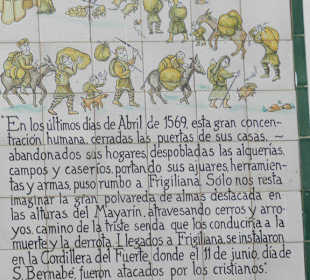 "En los últimos días de Abril de 1569, esta gran concen-
tración humana, cerradas las puertas de sus casas, ~
abandonados sus hogares, despobladas las alquerías,
campos y caseríos, portando sus ajuares, herramien-
tas y armas, puso rumbo a Frigiliana. Solo nos resta
imaginar la gran polvareda de almas destacada en
las alturas del Mayarín, atravesando cerros y arro-
yos, camino de la triste senda que los conduciría a la
muerte y la derrota. Llegados a Frigiliana, se instalaron
en la Cordillera del Fuerte, donde el 11 de junio, día de
S. Bernabé, fueron atacados por los cristianos."